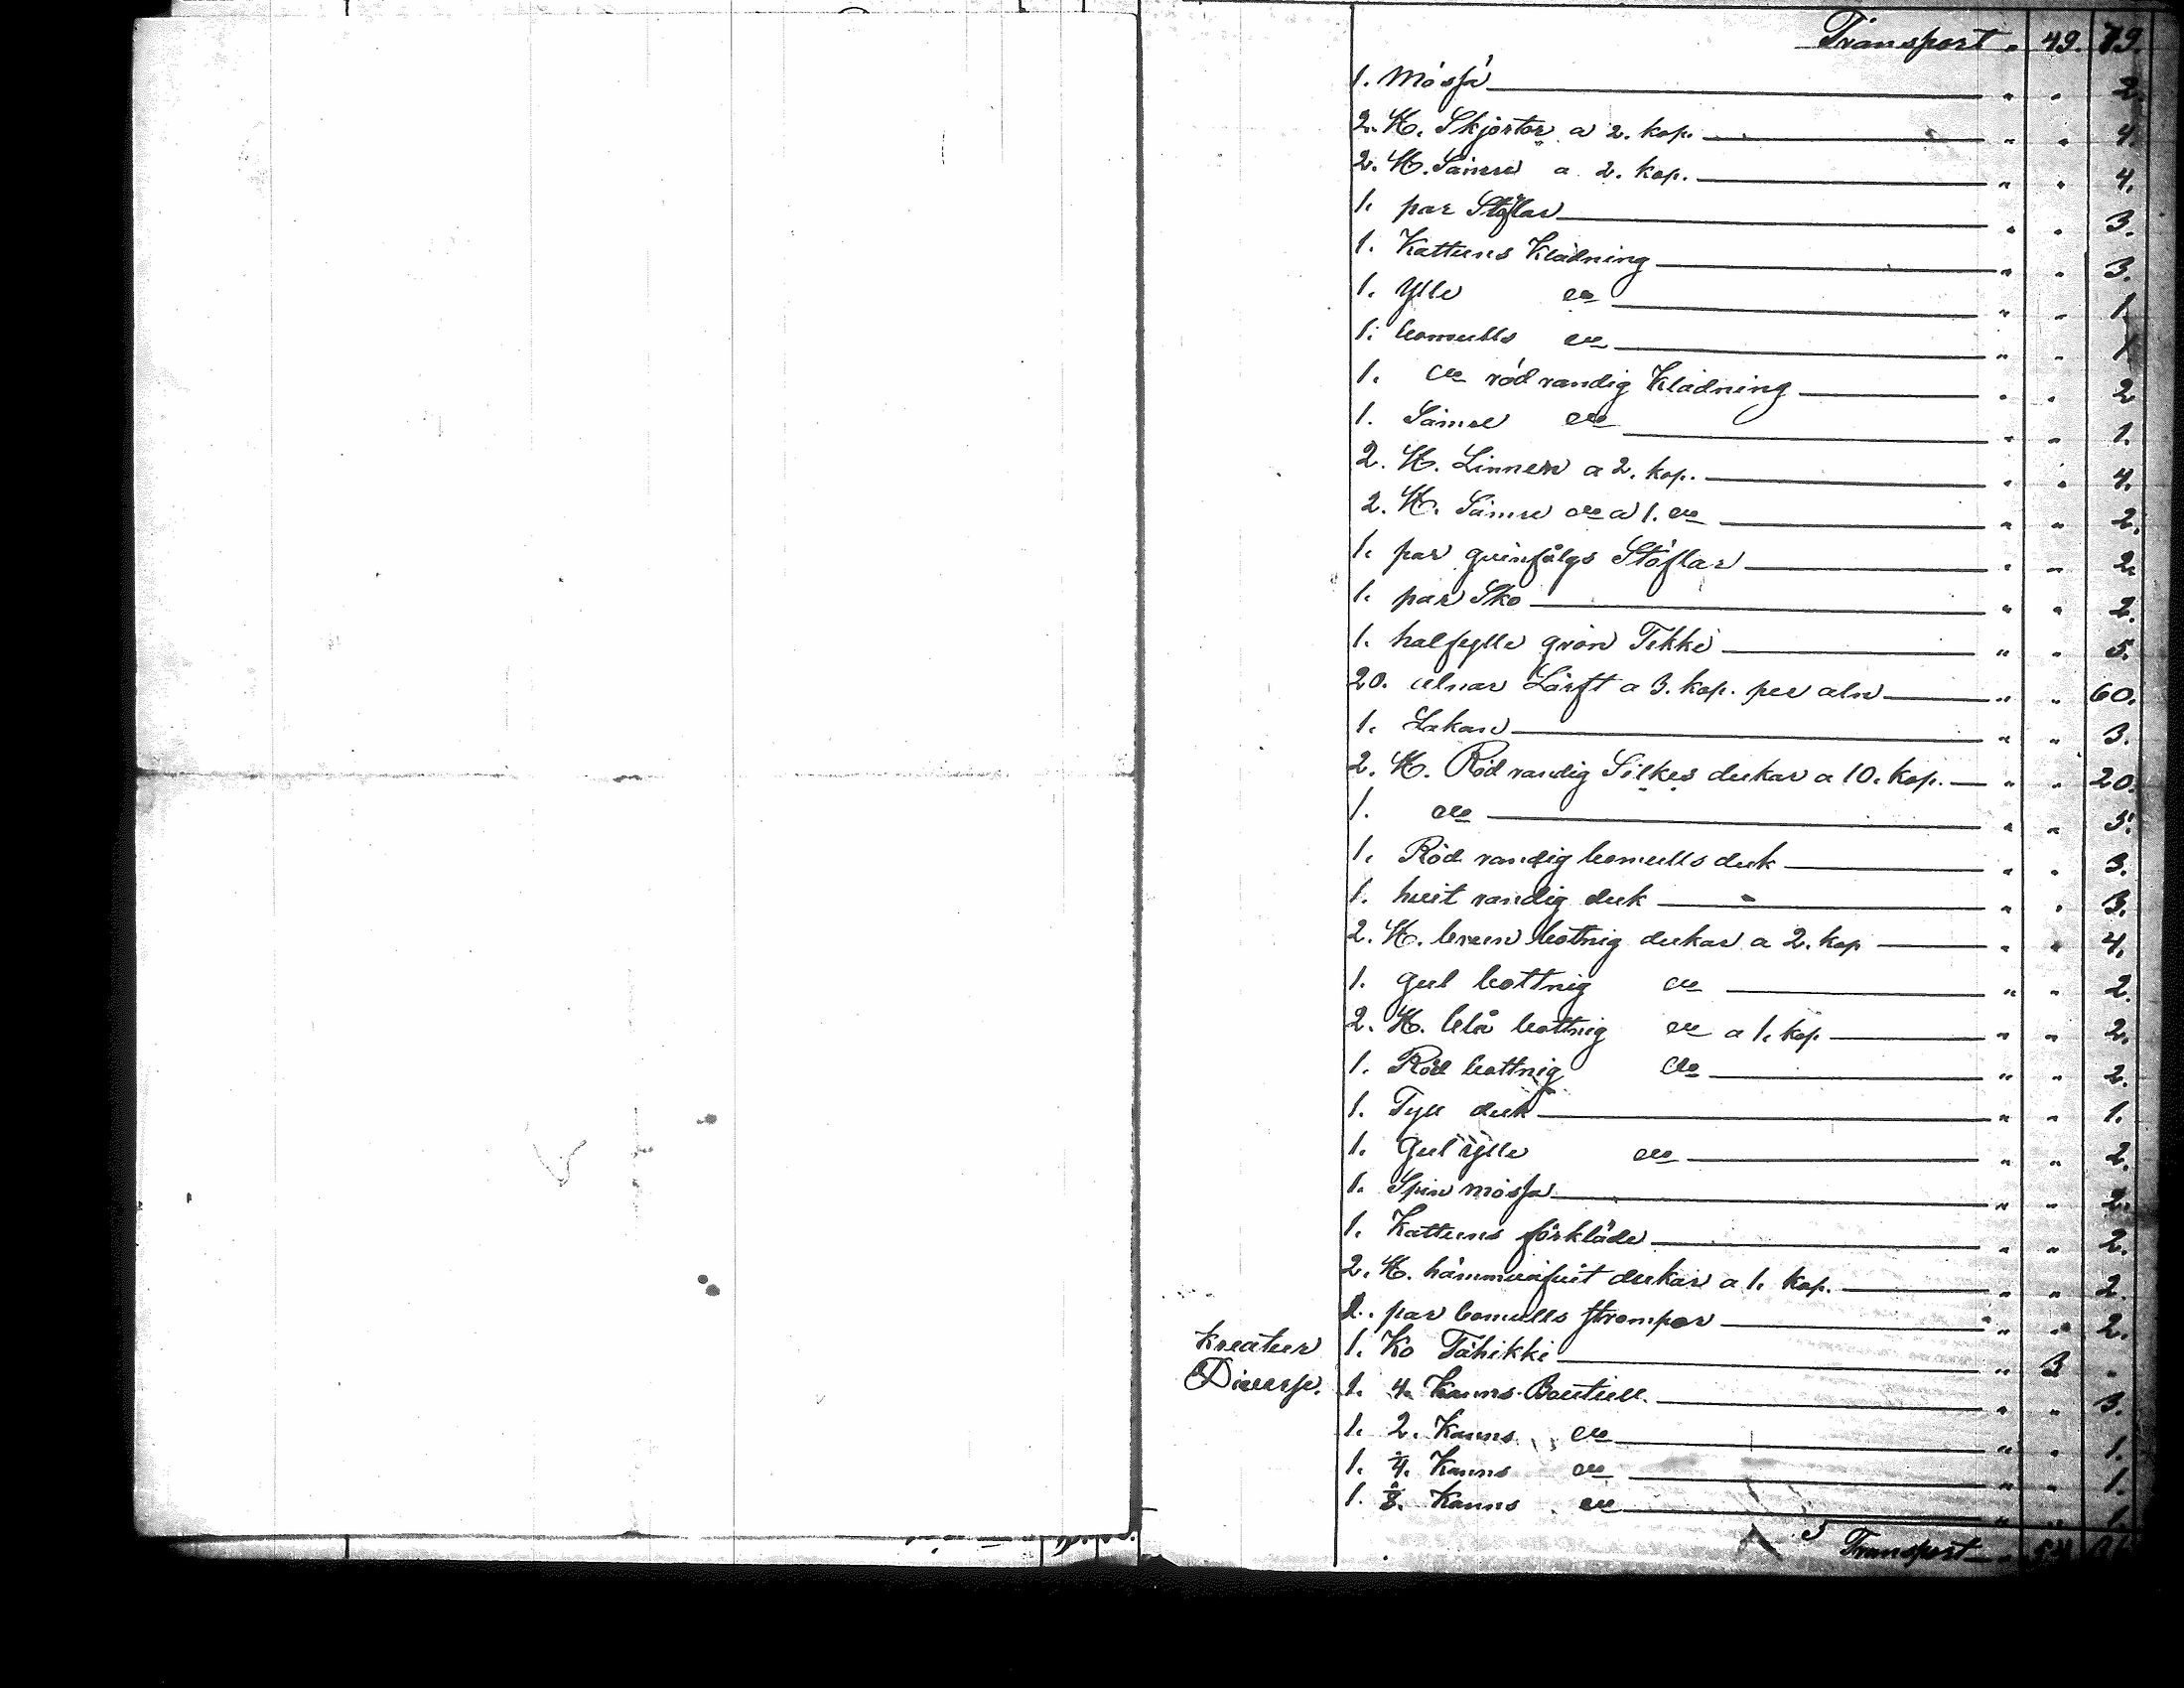 Transport " 49. 79.
1. Mössa " " 2.
2. st. Skjortor a 2. kop. " " 4.
2. st. Sämre a 2. kop. " " 4.
1. par Stöflar " " 3.
1. Kattuns Klädning " " 3.
1. Ylle do " " 1.
1. bomulls do " " 1
1. do röd randig Klädning " " 2
1. Sämre do " " 1.
2. st. Linnen a 2. kop. " " 4.
2. st. Sämre do a 1. do " " 2.
1. par qvinfolgs Stöflar " " 2.
1. par Sko " " 2.
1. halfylle grön Tekki " " 5.
20. alnar Lärft a 3. kop. per aln " " 60.
1. Lakan " " 3.
2. st. Röd randig Silkes dukar a 10. kop. " " 20.
1. do " " 5.
1. Röd randig bomulls duk " " 3.
1. hvit randig duk " " 3.
2. st. brun botnig dukar a 2. kop " " 4.
1. gul bottnig do " " 2.
2. st. blå bottnig do a 1. kop " " 2.
1. Röd bottnig do " " 2.
1. Tyll duk " " 1.
1. Gul ylle do " " 2.
1. Spin mössa " " 2.
1. Kattuns förkläde " " 2.
2. st. dukar a 1. kop. " " 2.
2. par bomulls strompor " " 2.
Kreatur 1. Ko Tähikki " 3 "
Diverse. 1. 4. Kanns Bouteill. " " 3.
1. 2. Kanns do " " 1.
1. 4. Kanns do " " 1.
1. 8. Kanns do " " 1.
Transport " 54